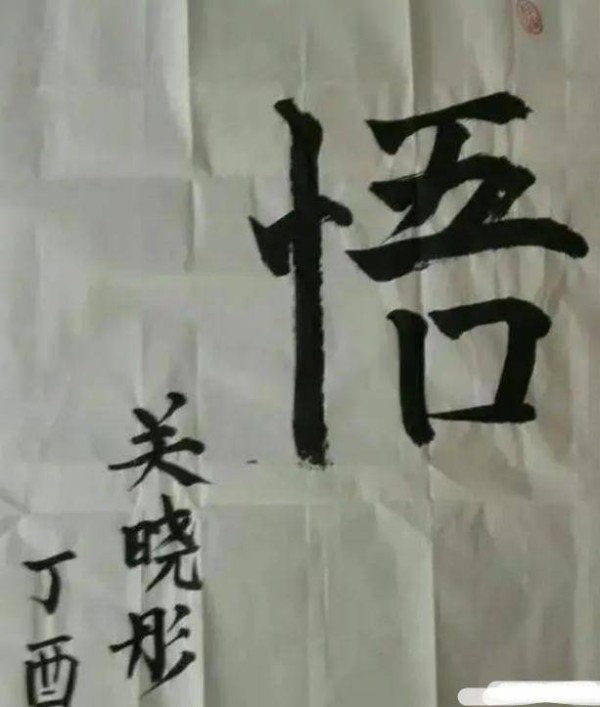 悟
关晓彤
丁酉